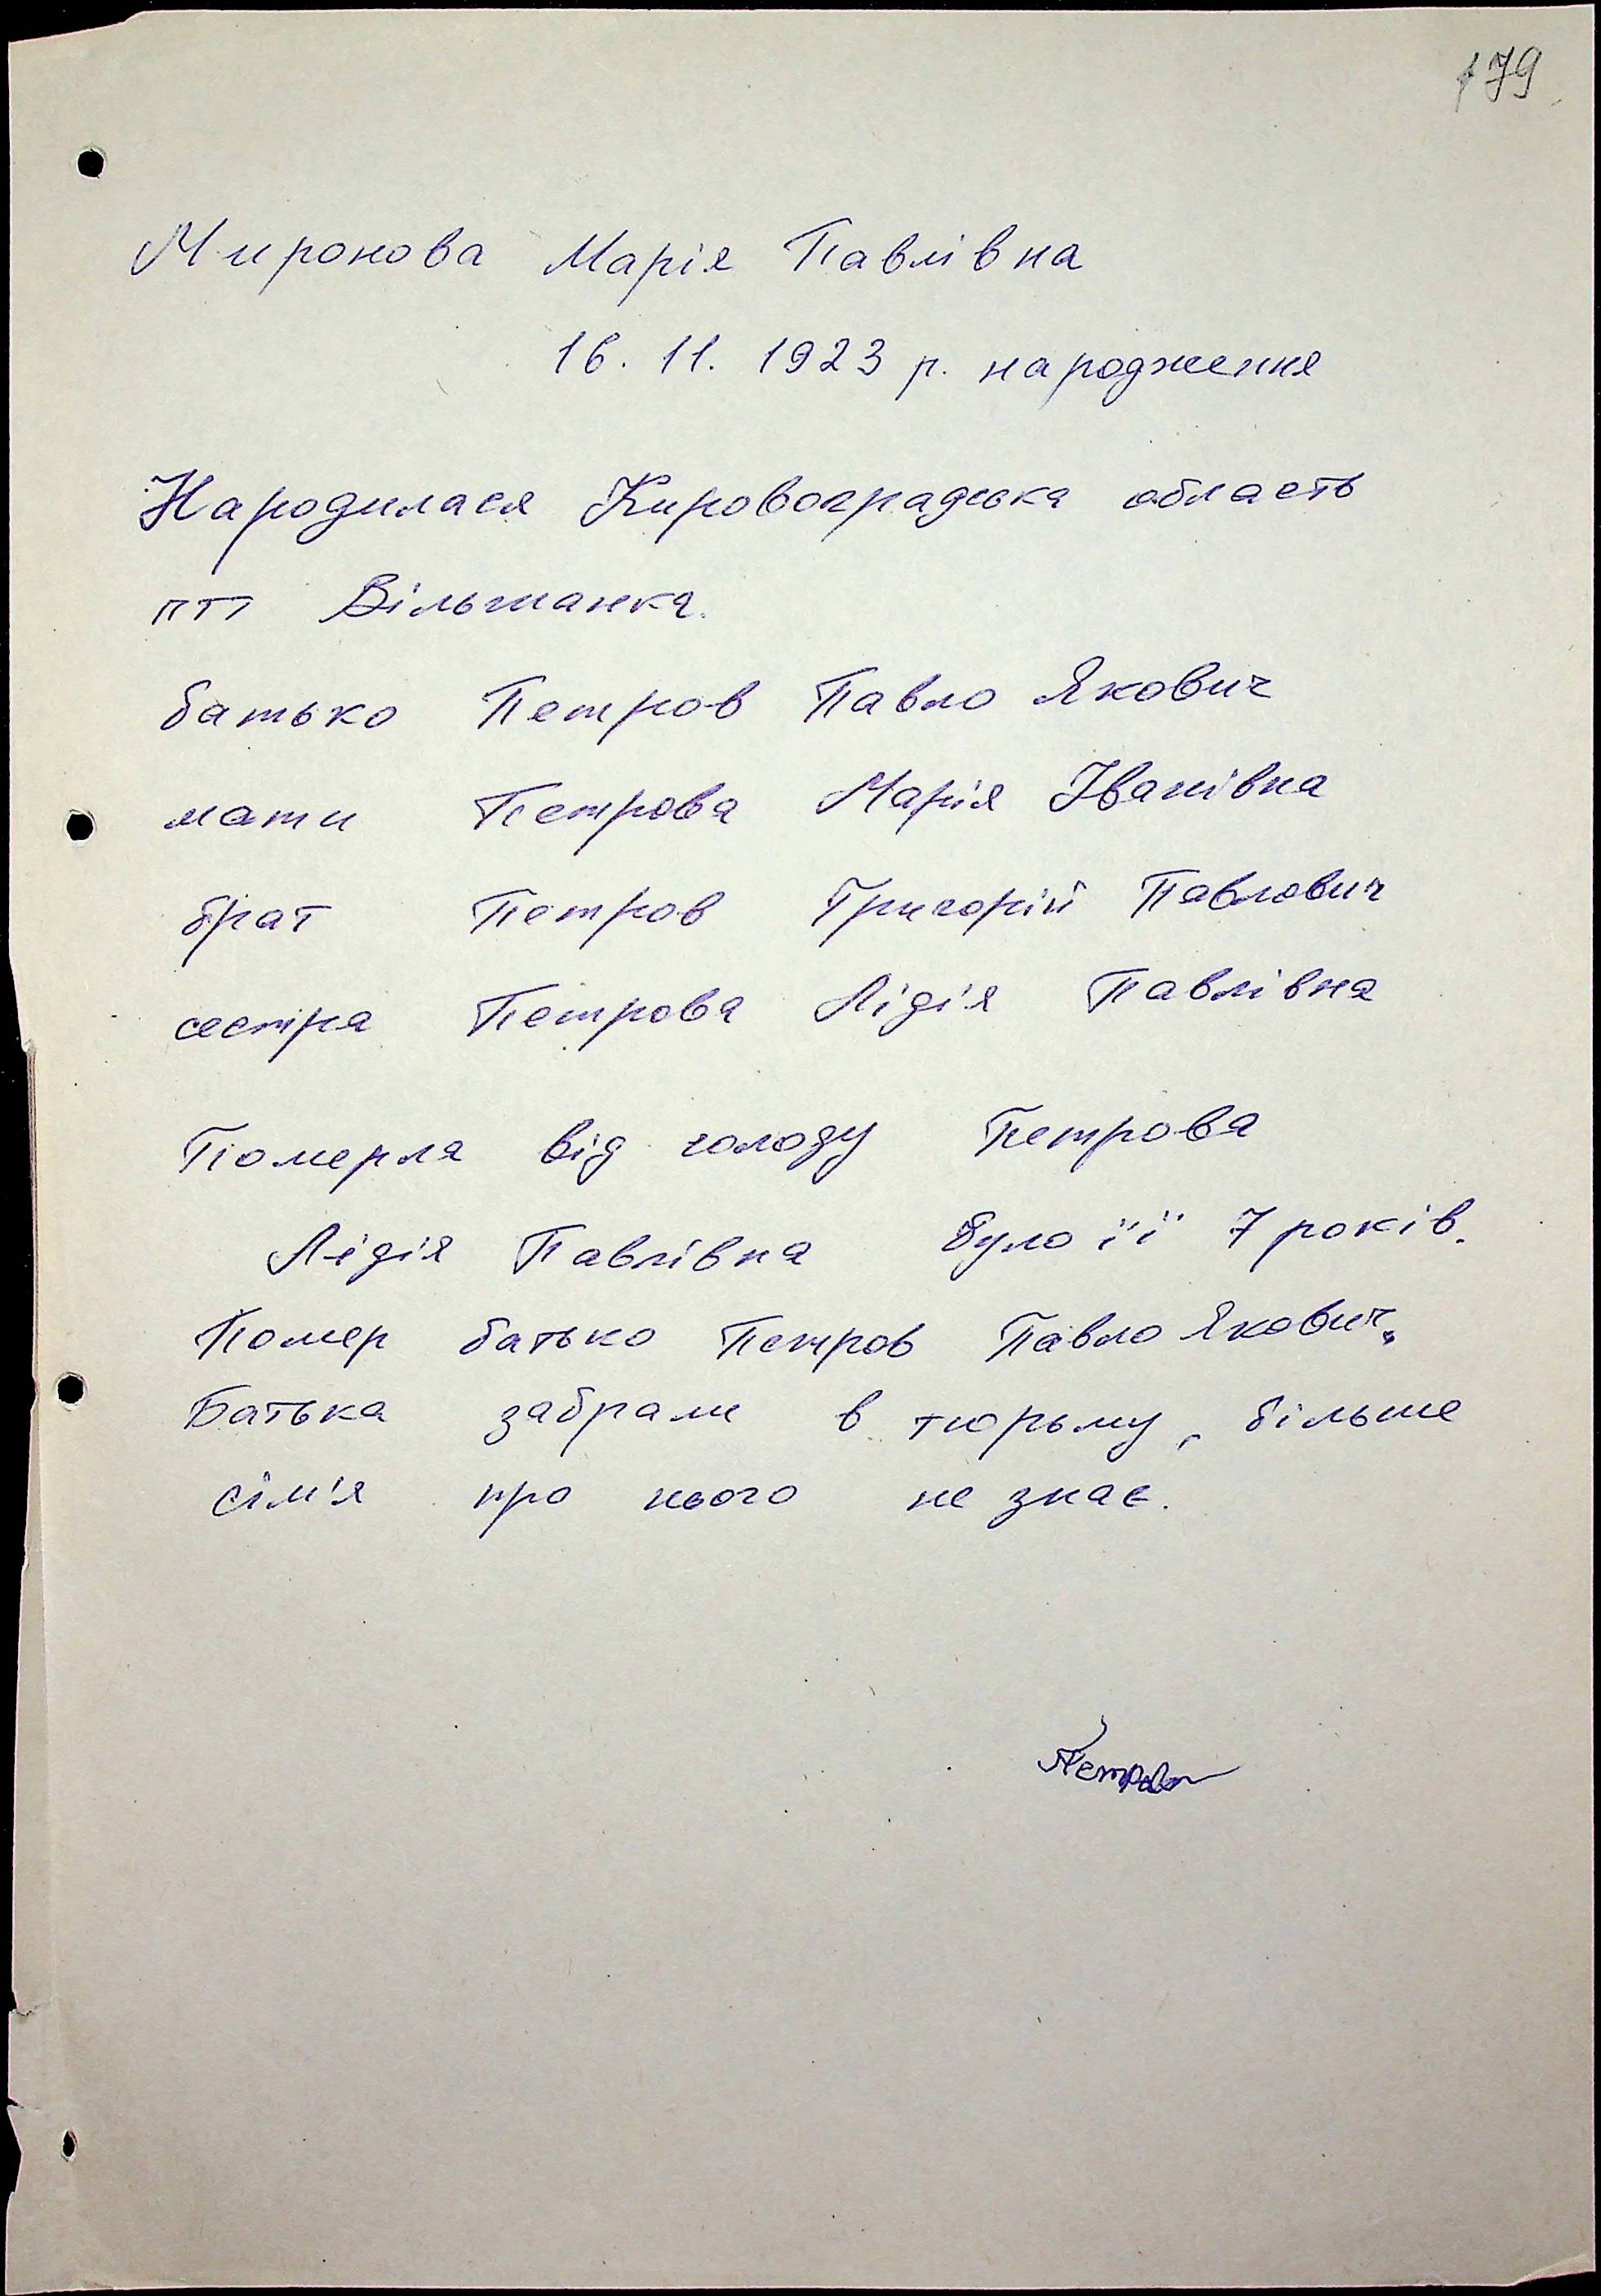 179
Миронова Марія Павлівна
16. 11. 1923 р. народження
Народилася Кировоградська область
пгт Вільшанка.
батько Петров Павло Якович
мати Петрова Марія Іванівна
брат Петров Григорій Павлович
сестра Петрова Лідія Павлівна
Померла від голоду Петрова
Лідія Павлівна було її 7 років.
Помер батько Петров Павло Якович.
Батька забрали в тюрьму, більше
сім'я про нього не знає.